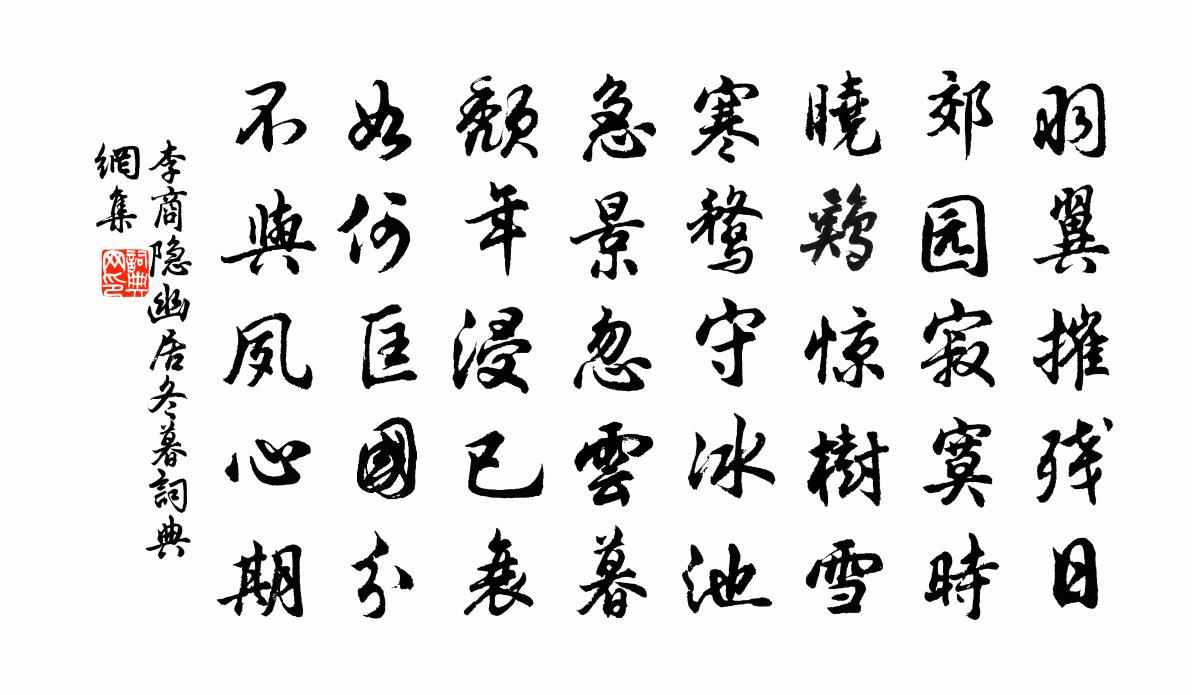 羽翼摧残日
郊园寂寞時
曉鷄惊樹雪
寒鶩守冰池
急景忽雲暮
頽年浸已衰
如何匡國分
不與夙心期
李商隐幽居冬暮詞典
網集
詞典網印